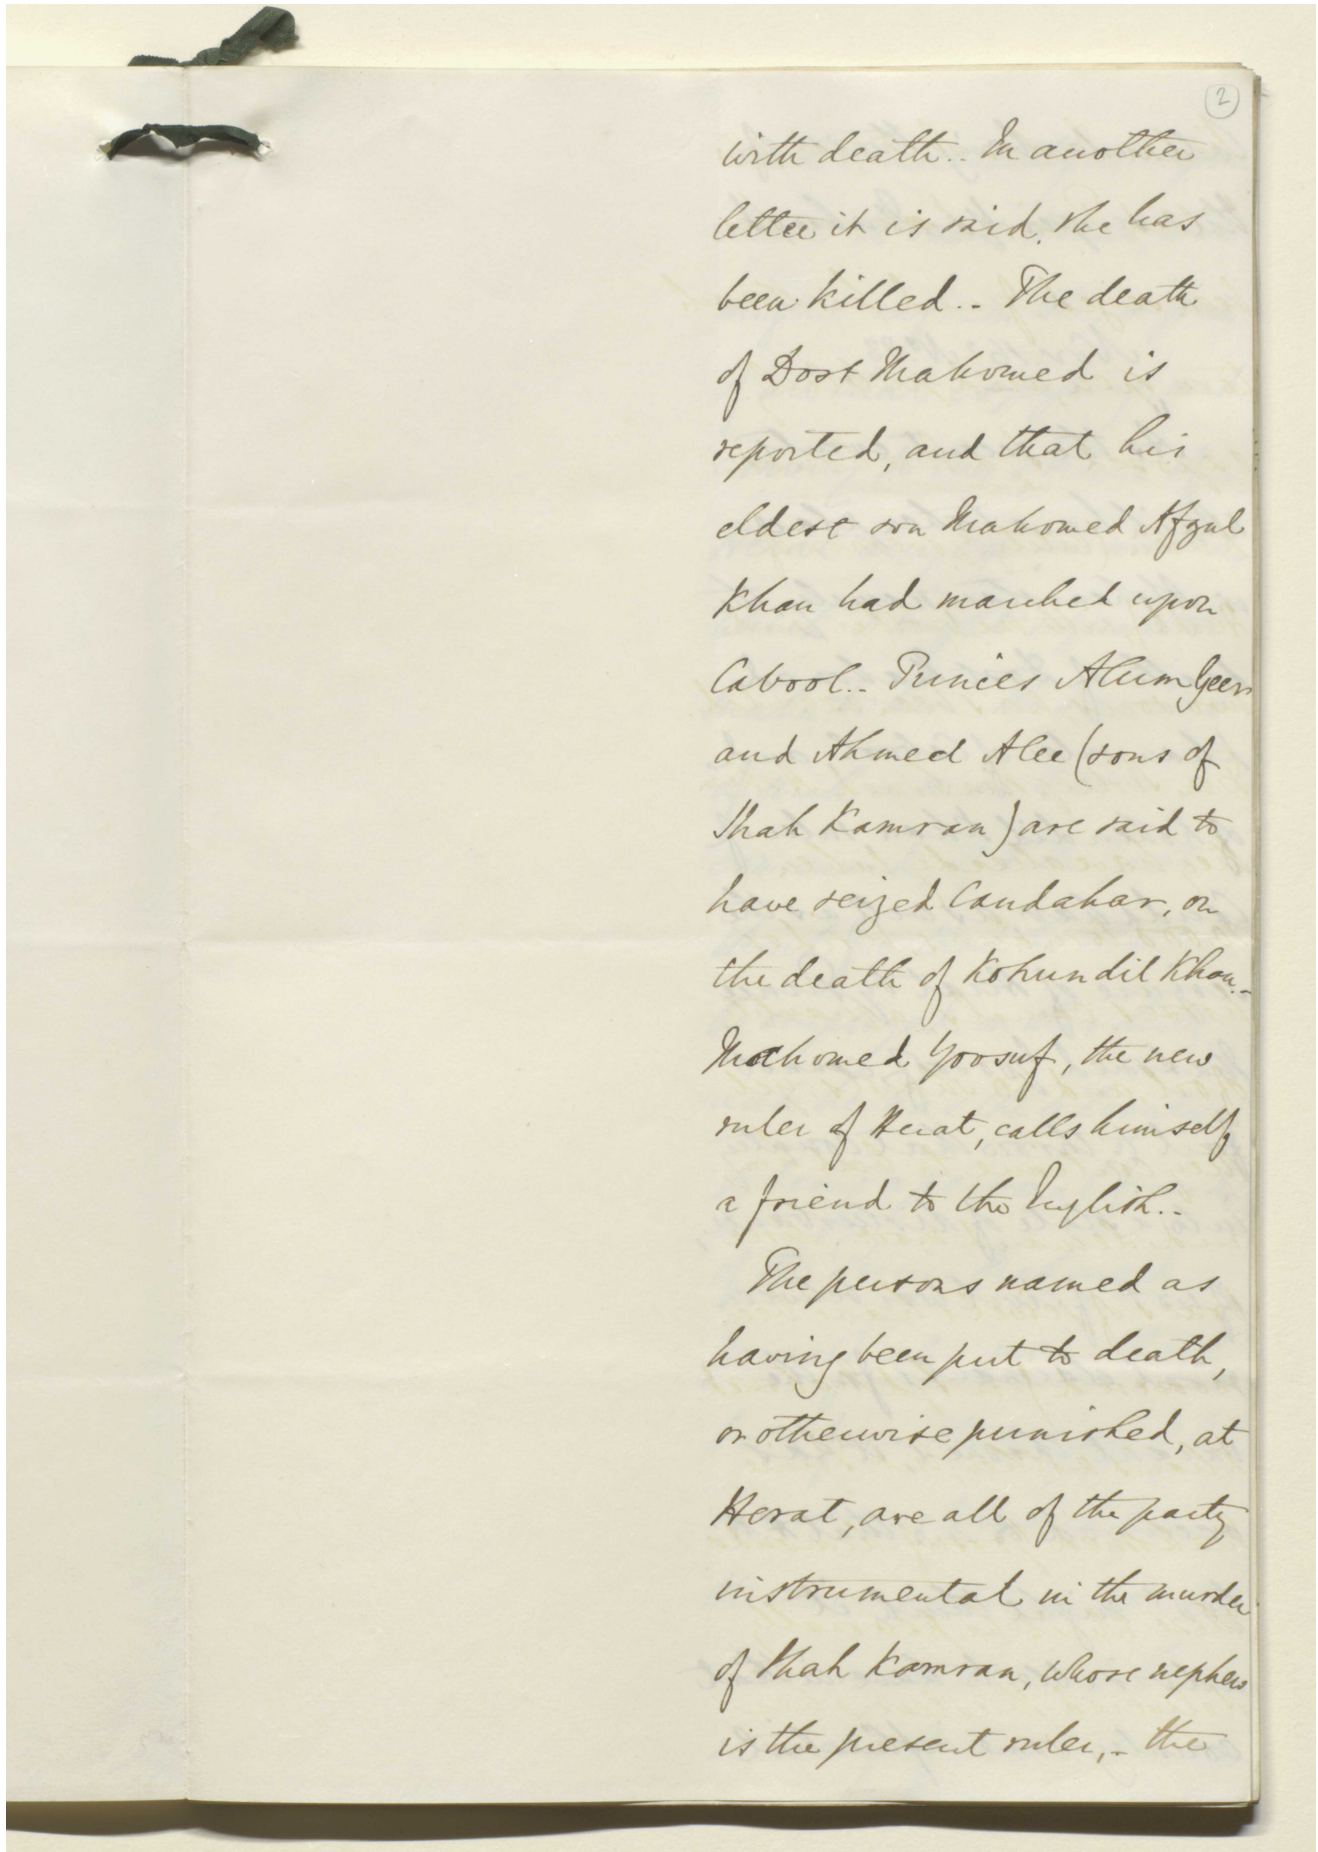 2
with death.. In another
letter it is said, she has
been killed.. The death
of Dost Mahomed is
reported, and that his
eldest son Mahomed Afzul
Khan had marched upon
Cabool.. Princes Alum Geer
and Ahmed Alee (sons of
Shah Kamran) are said to
have seized Candahar, on
the death of Kohundil Khan.-
Mahomed Yoosuf, the new
ruler of Herat, calls himself
a friend to the English..
The persons named as
having been put to death,
or otherwise punished, at
Herat, are all of the party
instrumental in the murder
of Shah Kamran, whose nephew
is the present ruler,- the